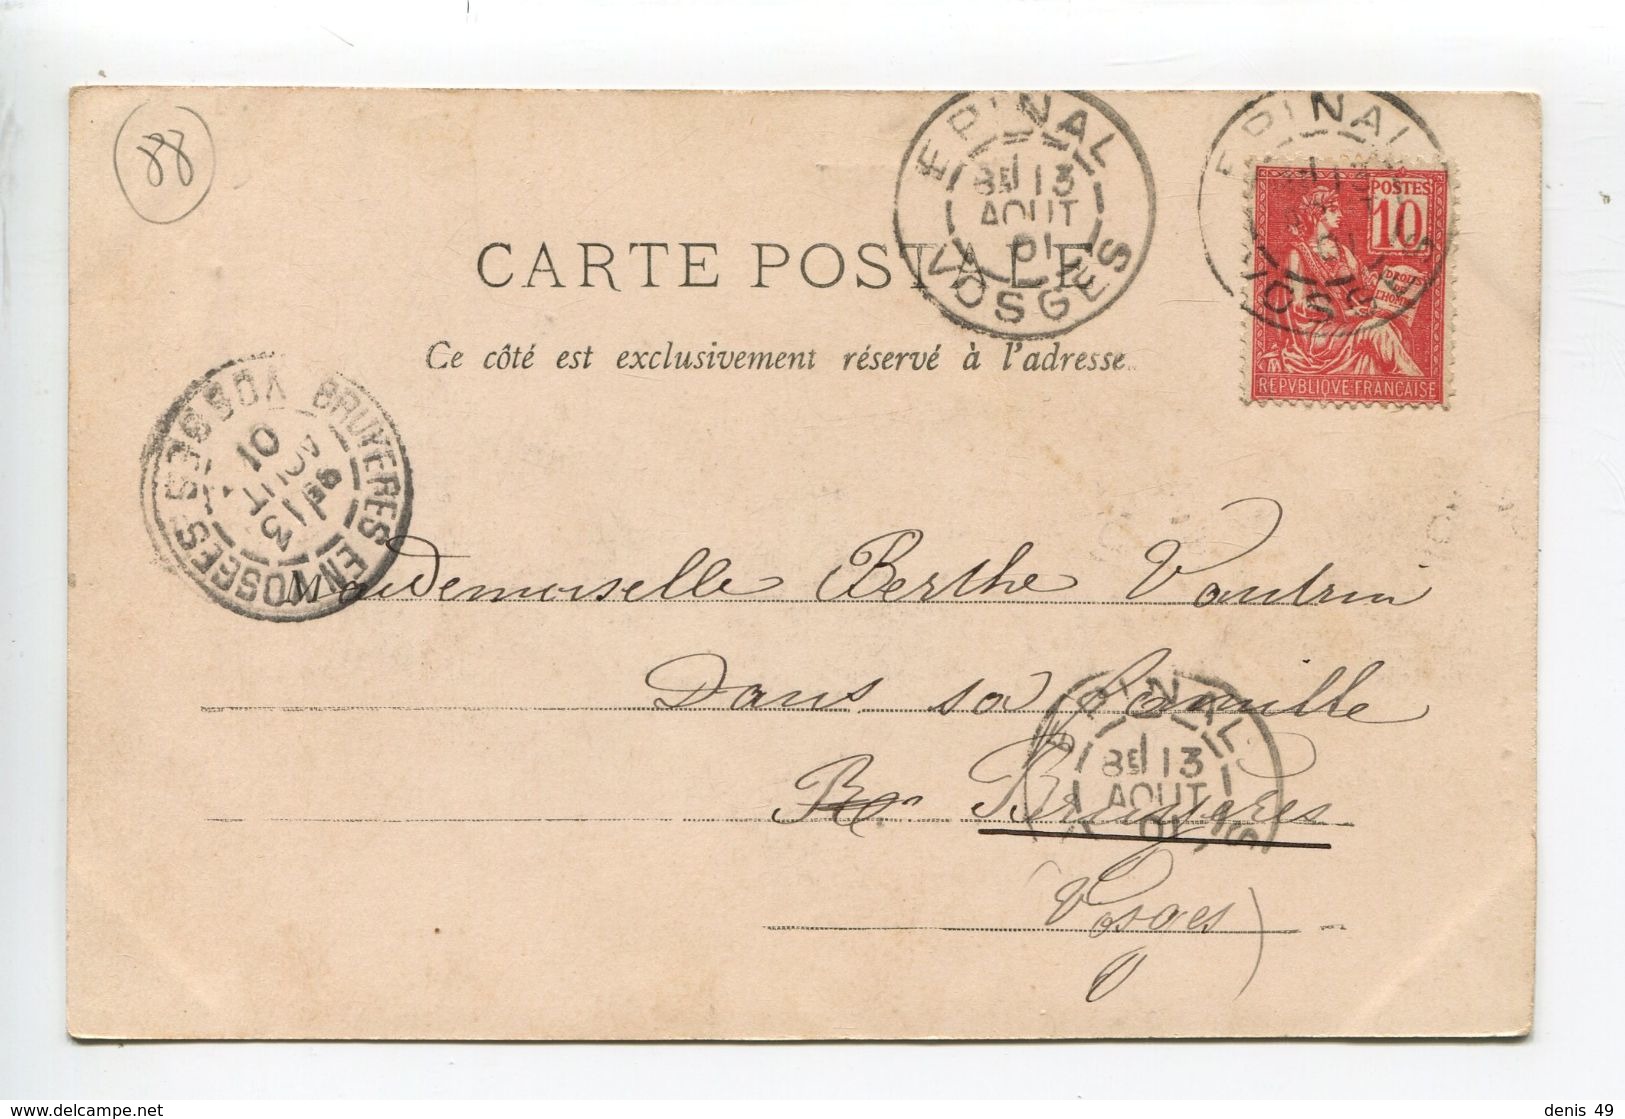 88
EPINAL
8E 13
AOUT
01
VOSGES
EPINAL
13
01
POSTES
10
DROITS
DE
L'HOMME
REPVBLIQVE FRANÇAISE
CARTE POSTALE
Ce côté est exclusivement réservé à l'adresse.
BRUYERES EN VOSGES VOSGES
8E
13
AOUT
01
Mademoiselle Berthe Vautrin
Dans sa famille
Bruyères
(Vosges)
EPINAL
8E 13
AOUT
01
www.delcampe.net
denis 49